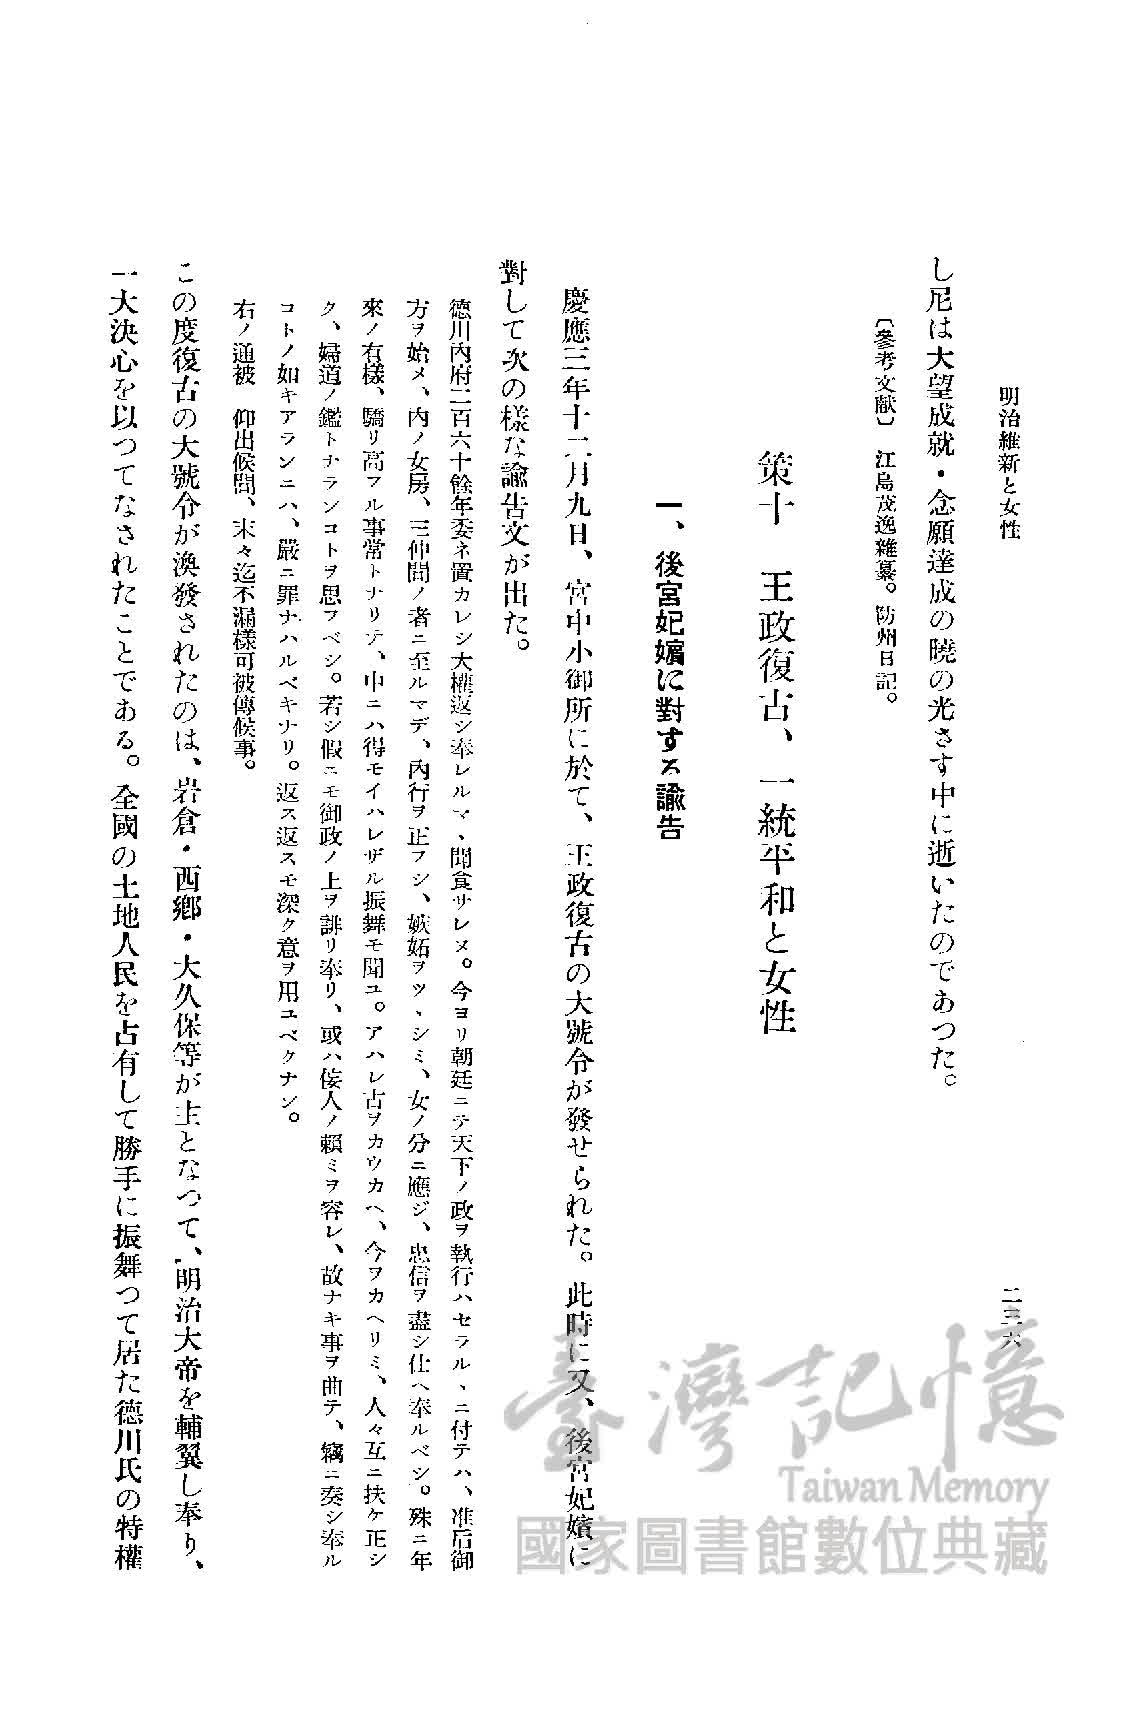 明治維新と女性
二三六
し尼は大望成就・念願達成の曉の光さす中に逝いたのであつた。
〔參考文獻〕 江島茂逸雜纂。防州日記。
策十 王政復古、一統平和と女性
一、後宮妃嬪に對する諭告
慶應三年十二月九日、宮中小御所に於て、王政復古の大號令が發せられた。此時に又、後宮妃嬪に
對して次の樣な諭告文が出た。
德川內府二百六十餘年委ネ置カレシ大權返シ奉レルマヽ聞食サレヌ。今ヨリ朝廷ニテ天下ノ政ヲ執行ハセラルヽニ付テハ、准后御
方ヲ始メ、內ノ女房、三仲間ノ者ニ至ルマデ、內行ヲ正フシ、嫉妬ヲツヽシミ、女ノ分ニ應ジ、忠信ヲ盡シ仕ヘ奉ルベシ。殊ニ年
來ノ有樣、驕リ高フル事常トナリテ、中ニハ得モイハレザル振舞モ聞ユ。アハレ古ヲカウカヘ、今ヲカヘリミ、人々互ニ扶ケ正シ
ク、婦道ノ鑑トナランコトヲ思フベシ。若シ假ニモ御政ノ上ヲ誹リ奉リ、或ハ佞人ノ賴ミヲ容レ、故ナキ事ヲ曲テ、竊ニ奏シ奉ル
コトノ如キアランニハ、嚴ニ罪ナハルベキナリ。返ス返スモ深ク意ヲ用ユベクナン。
右ノ通被 仰出候間、末々迄不漏樣可被傳候事。
この度復古の大號令が渙發されたのは、岩倉・西鄕・大久保等が主となつて、明治大帝を輔翼し奉り、
一大決心を以つてなされたことである。全國の土地人民を占有して勝手に振舞つて居た德川氏の特權
臺灣記憶
Taiwan Memory
國家圖書館數位典藏